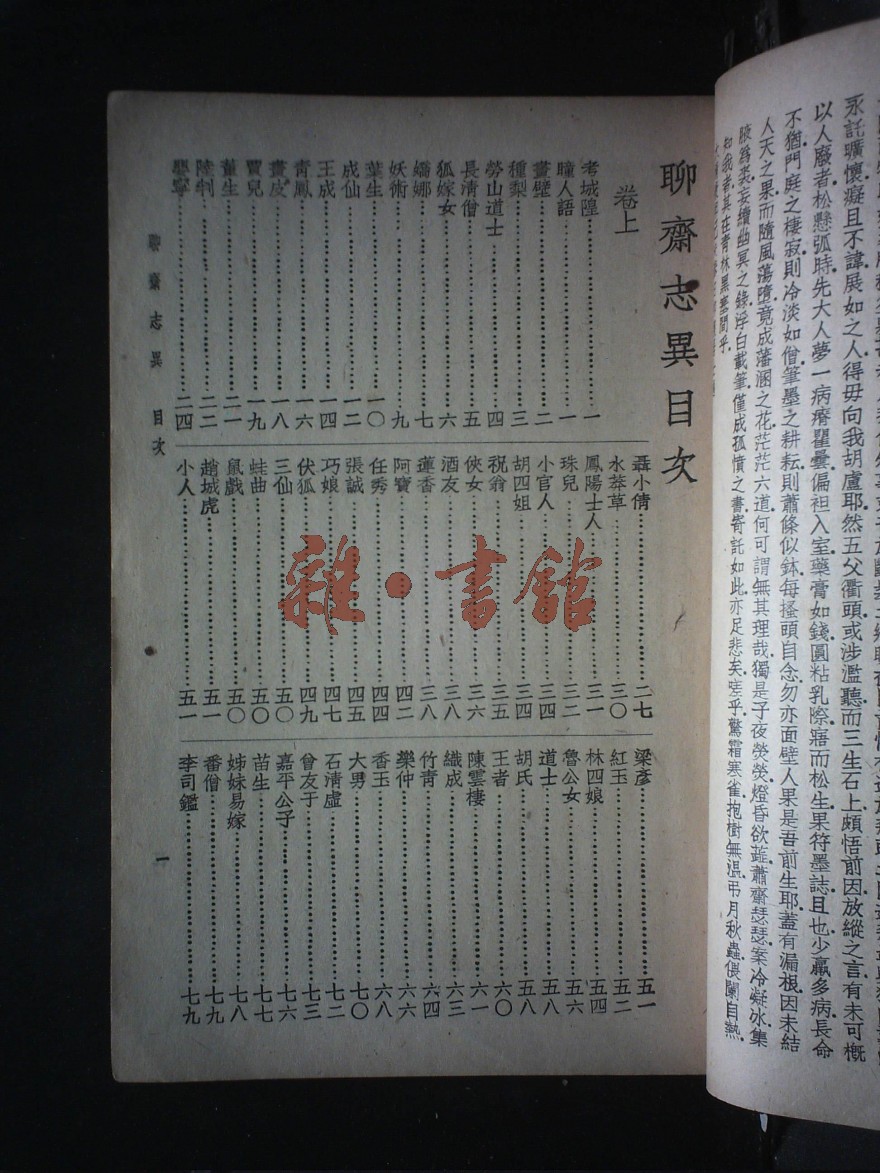 永託曠懷癡且不諱展如之人得毋向我胡盧耶然五父衢頭或涉濫聽而三生石上頗悟前因放縱之言有未可概
以人廢者松懸弧時先大人夢一病瘠瞿曇偏袒入室藥膏如錢圓粘乳際寤而松生果符墨誌且也少羸多病長命
不猶門庭之棲寂則冷淡如僧筆墨之耕耘則蕭條似鉢每搔頭自念勿亦面壁人果是吾前生耶蓋有漏根因未結
人天之果而隨風蕩墮竟成藩溷之花茫茫六道何可謂無其理哉獨是子夜熒熒燈昏欲蕊蕭齋瑟瑟案冷凝冰集
腋爲裘妄續幽冥之錄浮白載筆僅成孤憤之書寄託如此亦足悲矣嗟乎驚霜寒雀抱樹無温弔月秋蟲偎闌自熱
知我者其在青林黑塞間乎
聊齋志異目次
卷上
考城隍 一
瞳人語 一
畫壁 二
種梨 三
勞山道士 四
長清僧 五
狐嫁女 六
嬌娜 七
妖術 九
葉生 一〇
成仙 一二
王成 一四
青鳳 一六
畫皮 一八
賈兒 一九
董生 二一
陸判 二二
嬰寧 二四
聶小倩 二七
水莽草 三〇
鳳陽士人 三一
珠兒 三二
小官人 三四
胡四姐 三四
祝翁 三五
俠女 三六
酒友 三八
蓮香 三八
阿寶 四二
任秀 四四
張誠 四五
巧娘 四七
伏狐 四九
三仙 五〇
蛙曲 五〇
鼠戲 五〇
趙城虎 五一
小人 五一
梁彥 五一
紅玉 五二
林四娘 五四
魯公女 五六
道士 五八
胡氏 五八
王者 六〇
陳雲棲 六一
織成 六三
竹青 六四
樂仲 六六
香玉 六八
大男 七〇
石清虛 七二
曾友于 七三
嘉平公子 七六
苗生 七七
姊妹易嫁 七八
番僧 七九
李司鑑 七九
聊齋志異 目次
一
雜·書館